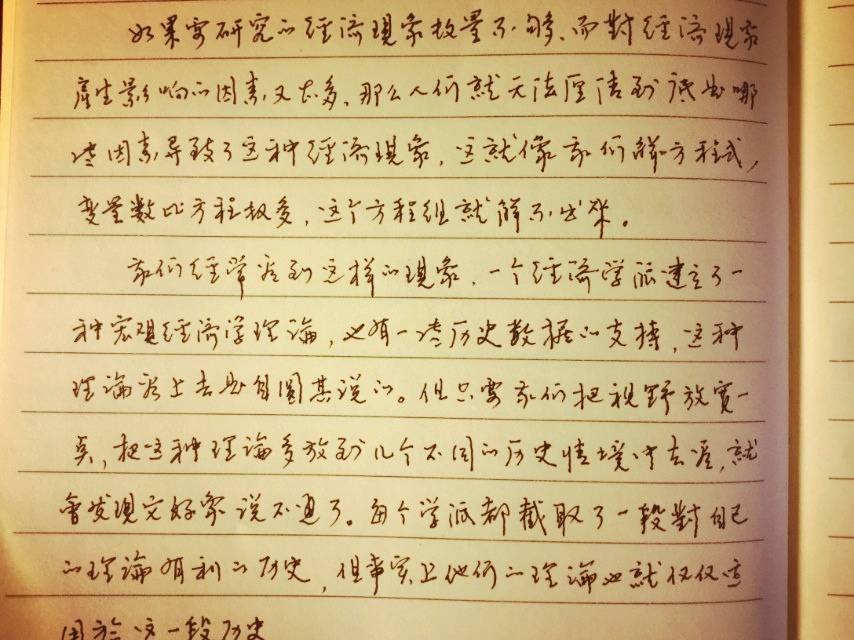 如果要研究的经济現象数量不够、而對经济現象
產生影响的因素又太多、那么人们就无法厘清到底是哪
些因素导致了这种经济現象，这就像我们解方程式，
变量数比方程极多，这个方程组就解不出来。
我们经常看到这样的現象，一个经济学派建立了一
种宏观经济学理论，也有一些历史数据的支持，这种
理论看上去是自圆其说的。但只要我们把视野放宽一
点，把这种理论多放到几个不同的历史情境中去看，就
會发現它好象说不通了。每个学派都截取了一段對自己
的理论有利的历史，但事实上他们的理论也就仅仅适
用於这一段历史